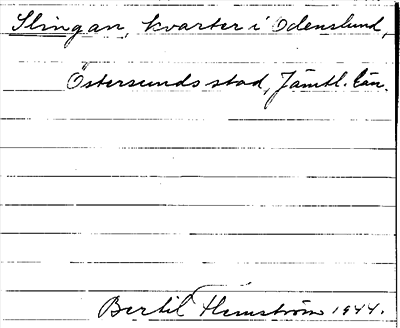 Slingan, kvarter i Odenslund,
Östersunds stad, Jämtl. län.
Bertil Flemström 1944.